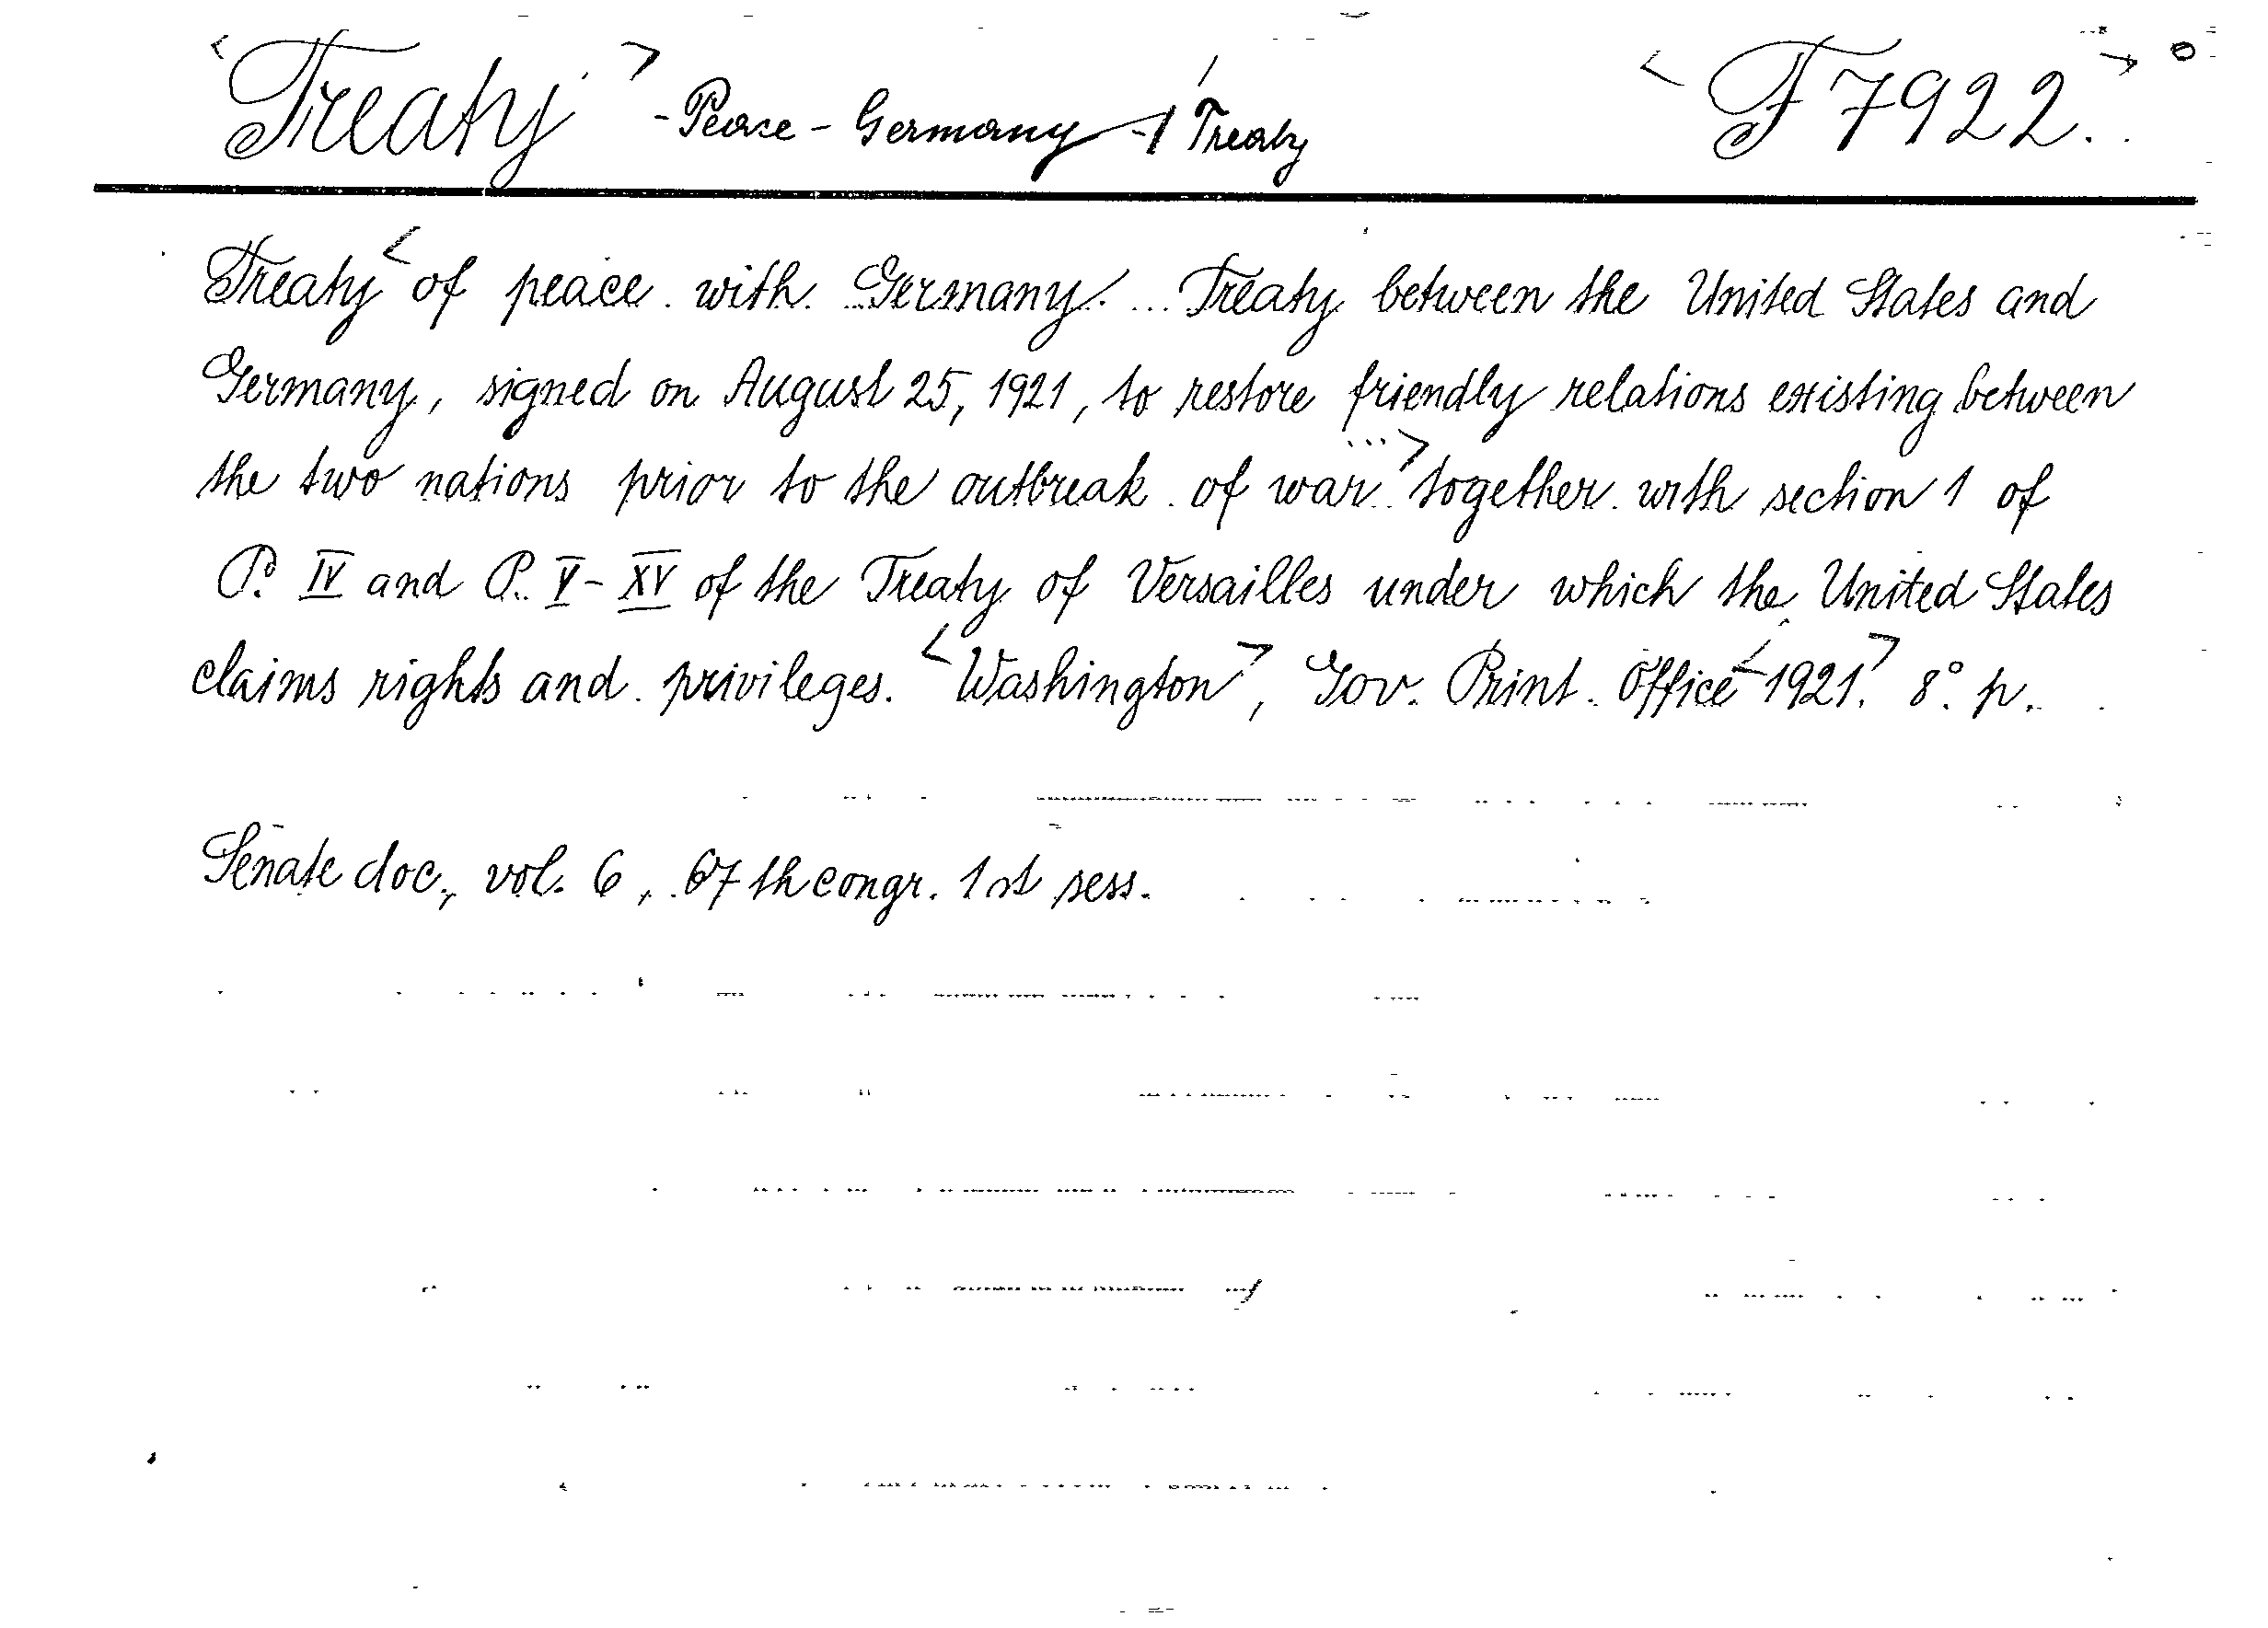 <Treaty> - Peace - Germany - / Treaty <F 7922.> °
Treaty < of peace with Germany. ... Treaty between the United States and
Germany, signed on August 25, 1921, to restore friendly relations existing between
the two nations prior to the outbreak of war ...> together with section 1 of
P. IV and P. V-XV of the Treaty of Versailles under which the United States
claims rights and privileges. <Washington>, Gov. Print. Office <1921.> 8° p.
Senate doc., vol. 6, 67th congr. 1st sess.